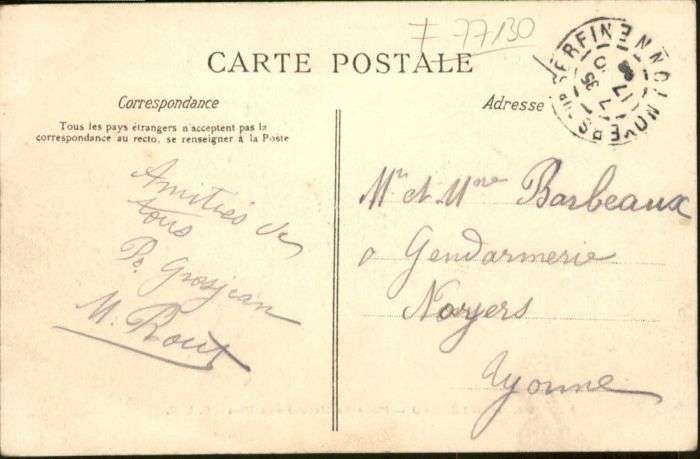 77130
CARTE POSTALE
Correspondance
Adresse
Tous les pays étrangers n'acceptent pas la
correspondance au recto, se renseigner à la Poste
Amitiés de
tous
Grosjean
M.
Mr et Mme Barbeaux
Gendarmerie
Noyers
Yonne
NOYERS-SUR-SEREIN
YONNE